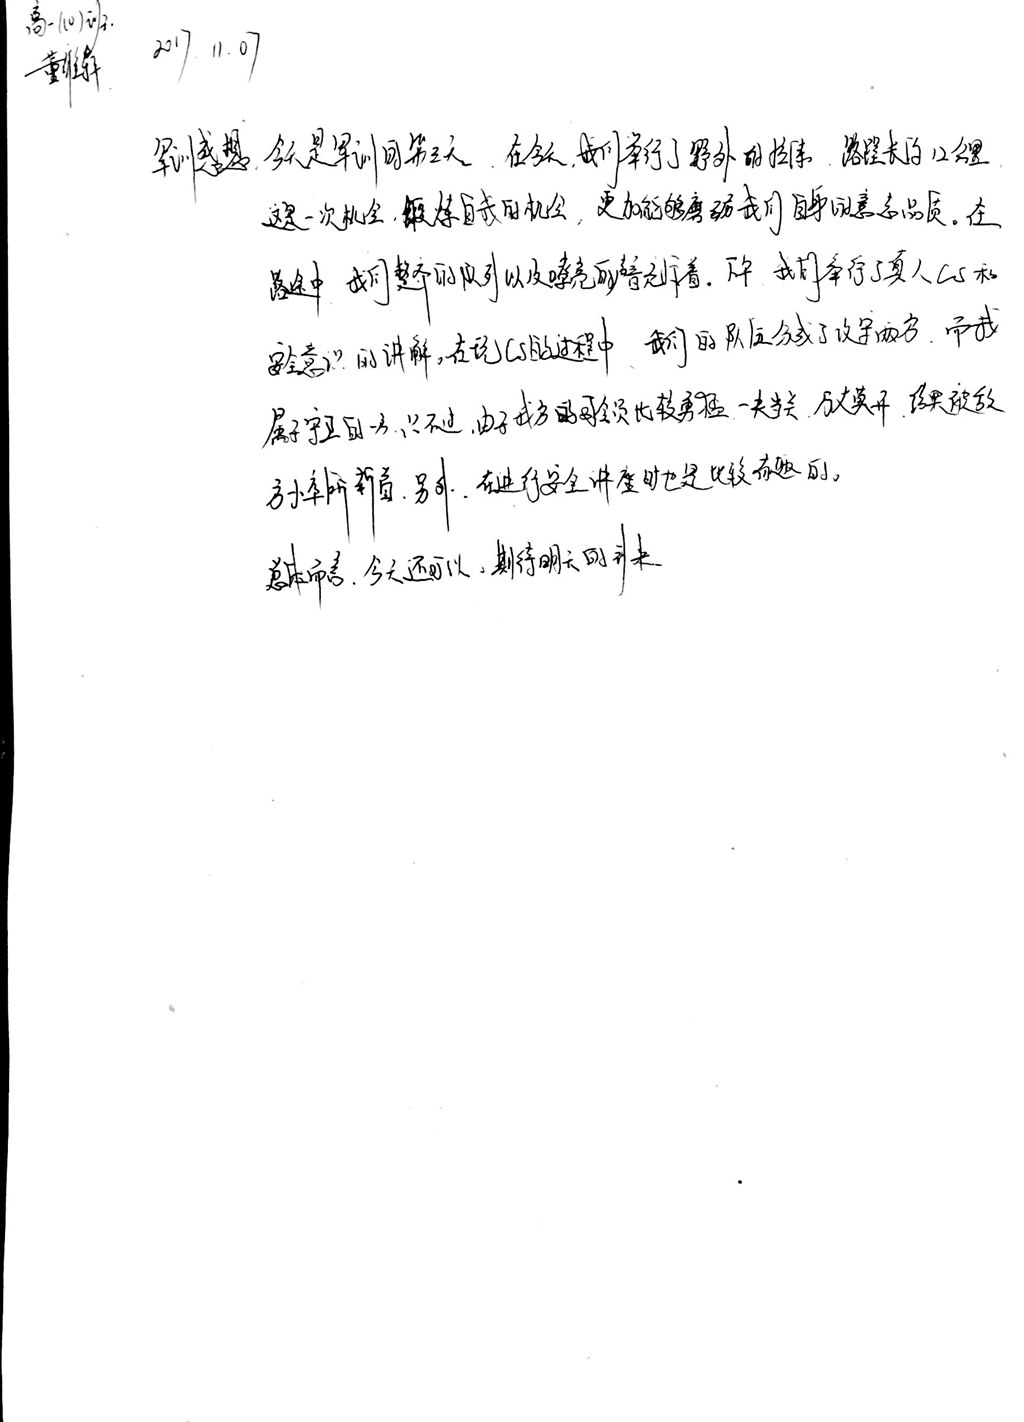 高一(10)班
2017.11.07
军训感想 今天是军训的第三天。在今天,我们举行了野外的拉练,路程长约12公里
这是一次机会,锻炼自我的机会,更加能够磨砺我们自身的意志品质。在
路途中 我们整齐的队列以及嘹亮的。下午 我们举行了真人CS和
安全意识的讲解,在玩CS的过程中 我们的队伍分成了攻守两方,而我
属于守卫的一方,只不过,由于我方的队员比较勇猛 一夫当关 万夫莫开,结果被敌
方小卒所斩首,另外,在进行安全讲座时也是比较有趣的。
总体而言,今天还可以,期待明天的到来